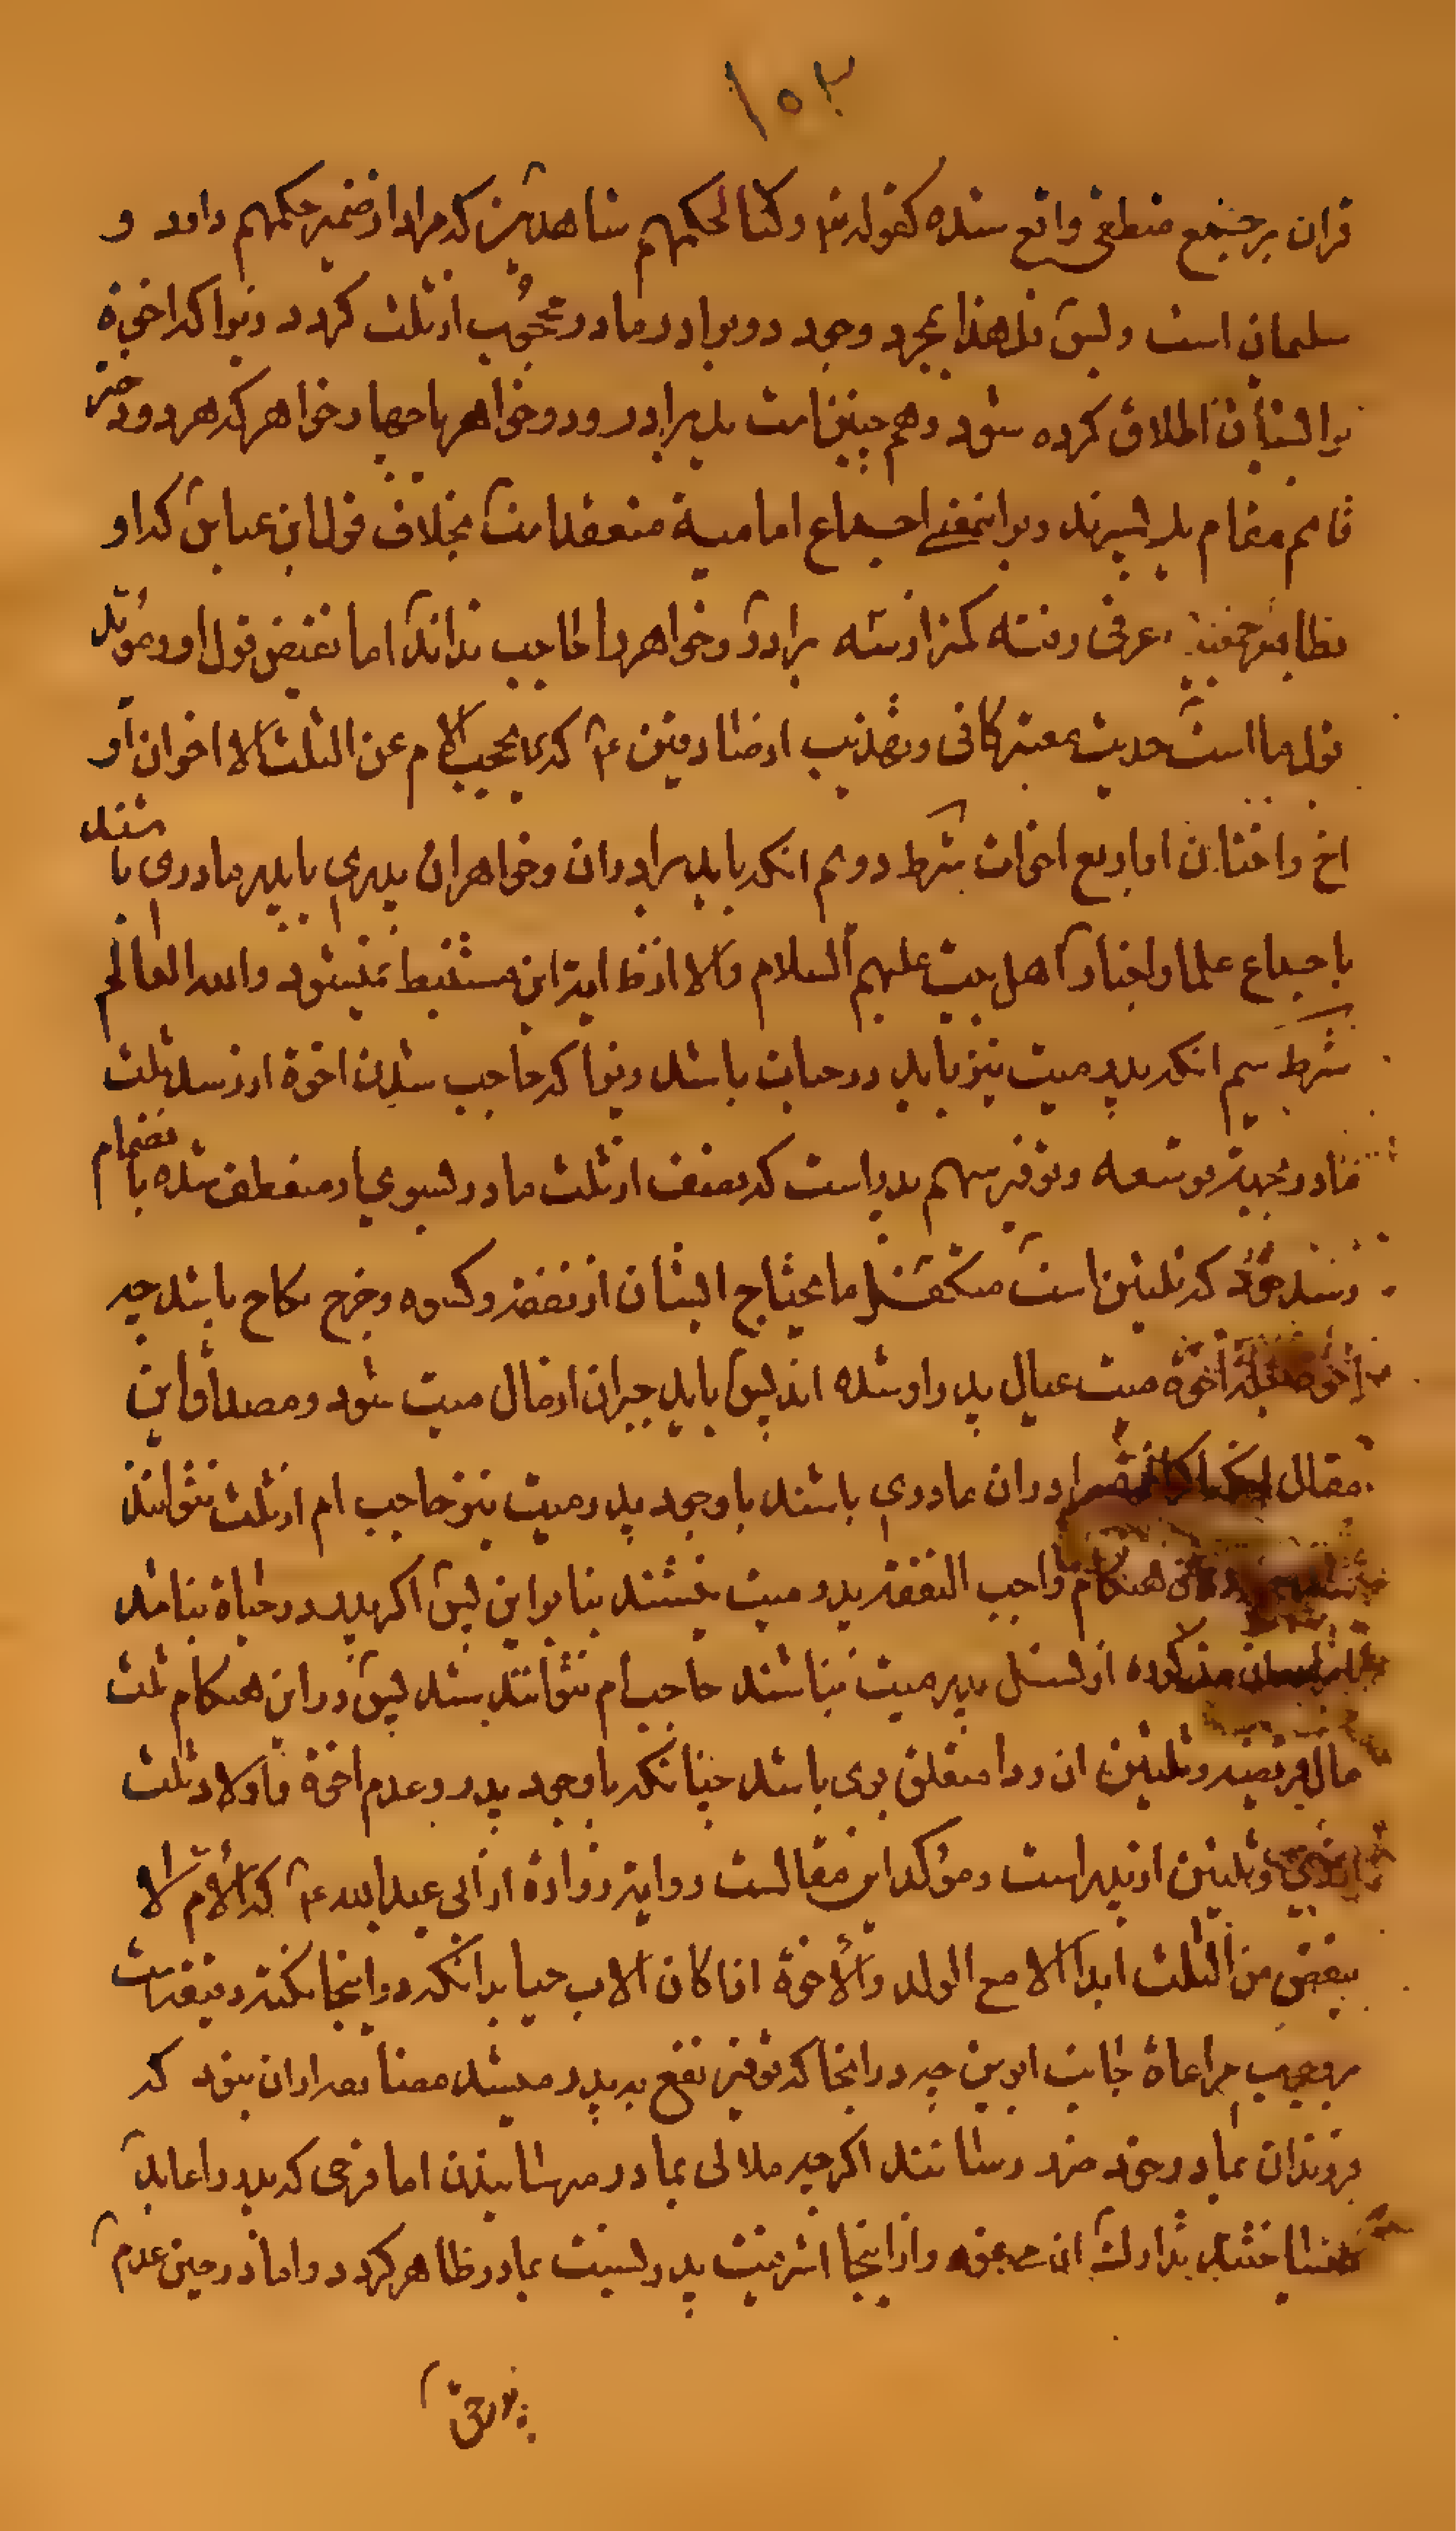 ۱۵۲
قران بر جمع منطقی واقع شده کقوله تع وکنا لحکمهم شاهدین که مراد از ضمیر حکمهم داود و
سلیمان است و بس فلهذا بمجرد وجود دو برادر مادر محجوب از ثلث کردد زیرا که اخوة
برایشان اطلاق کرده شود و هم چنین است یک برادر و دو خواهر یا چهار خواهر که هر دو دختر
قایم مقام یک پسرند و براینمعنی اجماع امامیة منعقد است بخلاف قول ابن عباس که او
بظاهر عرفی رفته کمتر از سه برادر و خواهر را حاجب نداند اما نقیض قول او و مؤید
قول ما است حدیث معتبر کافی و تهذیب از صادقین ع که لا یحجب الام عن الثلث الا اخوان او
اخ واختان او اربع اخوات شرط دویم انکه باید برادران و خواهران پدری یا پدر مادری باشند
باجماع علما و اخبار اهل بیت علیهم السلام والا از ظ ایة این مستنبط نمیشود والله العالم
شرط سیم انکه پدر میت نیز باید در حیات باشد زیرا که حاجب شدن اخوة از رسد ثلث
مادر بجهة توسعه و توفیر سهم پدر است که نصف از ثلث مادر بسوی او منعطف شده با نضمام
رسد خود که ثلثین است متکفل ما یحتاج ایشان از نفقه و کسوه و خرج نکاح باشد چه
اخوة میت عیال پدر او شده اند پس باید جبران از مال میت شود و مصداق این
مقال برادران مادری باشند با وجود پدر میت نیز حاجب ام از ثلث نتوانند
هنکام واجب النفقه پدر میت نیستند بنا براین پس اکر پدر در حیاة نباشد
مذکوره از نسل پدر میت نباشند حاجب ام نتوانند شد پس در این هنکام ثلث
مال فریضه و ثلثین ان ردا متعلق بوی باشد چنانکه با وجود پدر و عدم اخوة و اولاد ثلث
و ثلثین از پدر است و مؤکد این مقالست روایة زرارة از ابی عبدالله ع که الام لا
ینقص من الثلث ابدا الا مع الولد والاخوة اذا کان الاب حیا بدانکه در اینجا نکته دقیقه است
بروجوب مراعاة جانب ابوین چه در اینجا که توفیر نفع به پدر میشد مضایقه از ان نبود که
فرزندان بمادر خود ضرر رسانند اکرچه ملالی بمادر میرسانیدن اما فرحی که پدر را عاید
میساختند تدارک ان میبود و از اینجا اشرفیت پدر نسبت بمادر ظاهر کردد و اما در حین عدم